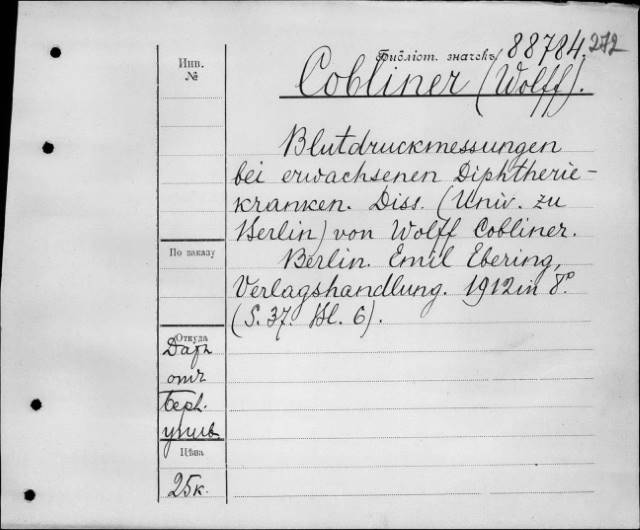 Библіот. значекъ 88784. 272
Инв.
№
Cobliner (Wolff).
Blutdruckmessungen
bei erwachsenen Diphtherie-
kranken. Diss. (Univ. zu
Berlin) von Wolff Cobliner.
По заказу
Berlin. Emil Ebering,
Verlagshandlung. 1912 in 8º.
(S. 37. Bl. 6).
Откуда
Даръ
отъ
Берл.
унив.
Цѣна
25к.